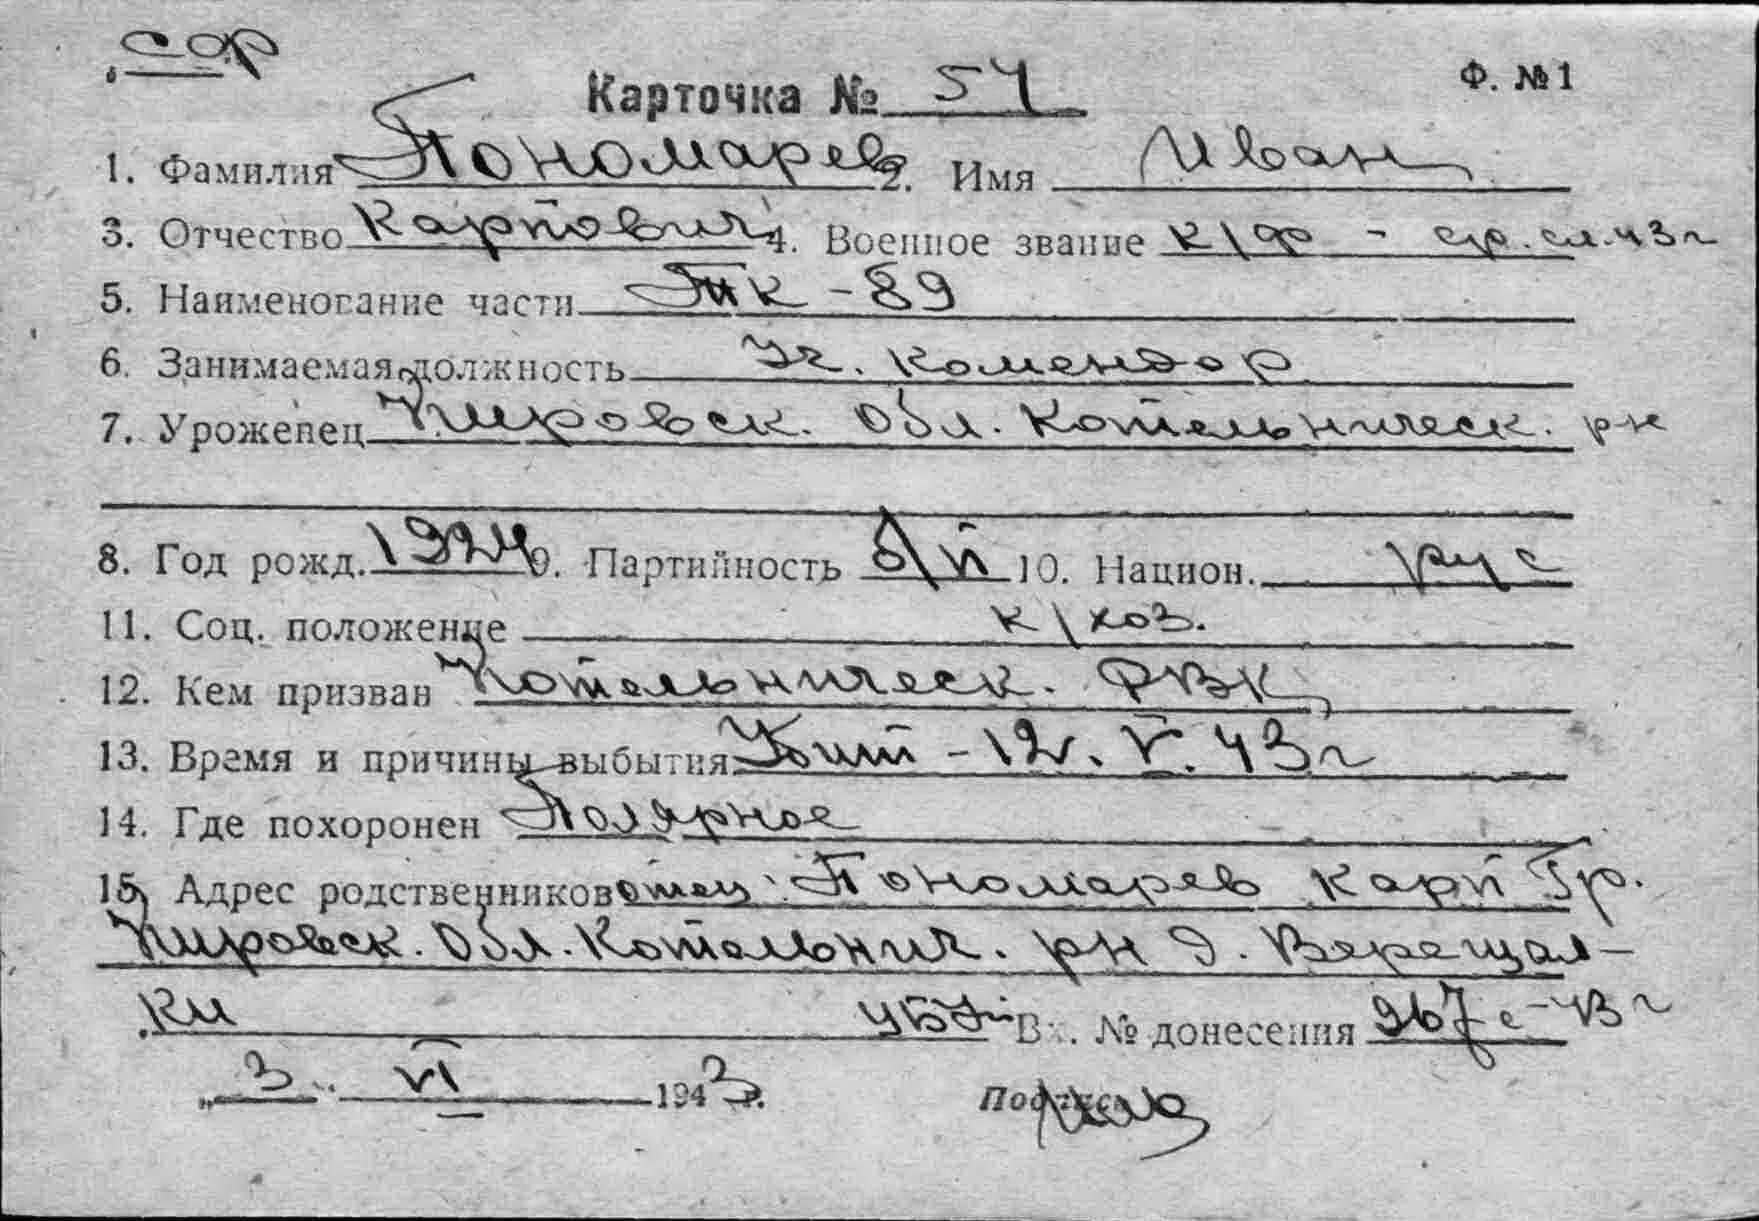 сф
Карточка № 54 Ф. №1
1. Фамилия Пономарев 2. Имя Иван
3. Отчество Карпович 4. Военное звание к/ф - ср. сл. 43 г
5. Наименование части ТК - 89
6. Занимаемая должность Уч. комендор
7. Уроженец Кировск. обл. Котельническ. рн
8. Год рожд. 1924 9. Партийность б/п 10. Национ. рус
11. Соц. положение к/хоз.
12. Кем призван Котельническ. РВК
13. Время и причины выбытия Убит - 12. V. 43 г
14. Где похоронен Полярное
15. Адрес родственников отец: Пономарев Карп Гр.
Кировск. обл. Котельнич. рн д. Верещал-
ки Вх. № донесения 267с - 43 г
„3“ VI 1943 г. Подпись